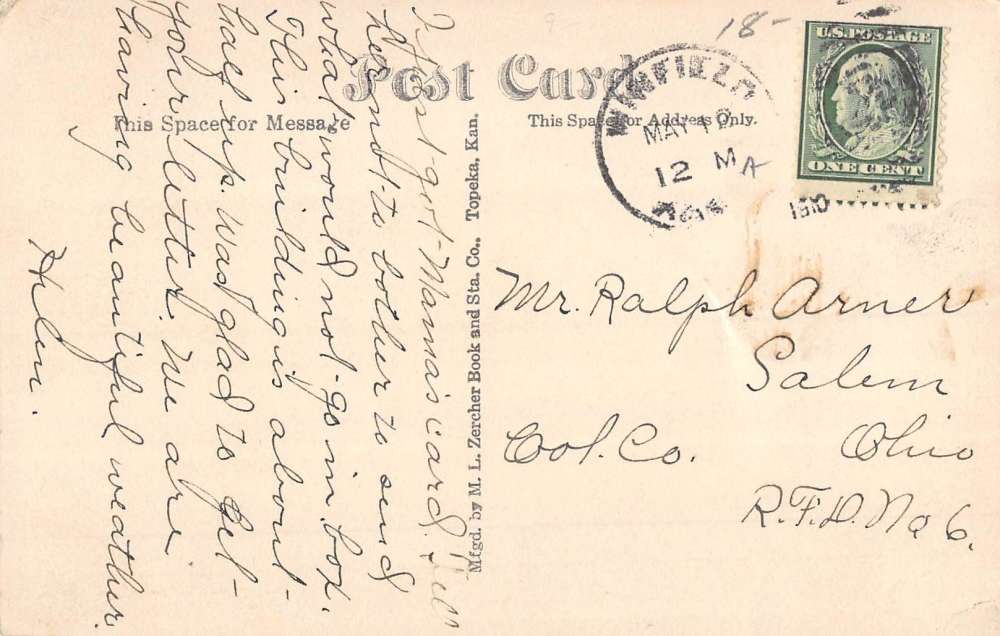 18-
Post Card
This Space for Message
This Space for Address Only.
U.S. POSTAGE
ONE CENT
WINFIELD
MAY 19
12 M
A
1910
1910
Just got Mama's card. Tell
her not to bother to send
what would not go in box.
This building is about
half up. Was glad to get
your letter. We are
having beautiful weather.
Helen.
Mfgd. by M. L. Zercher Book and Sta. Co., Topeka, Kan.
Mr. Ralph Arner
Salem
Col. Co. Ohio
R.F.D. No 6.